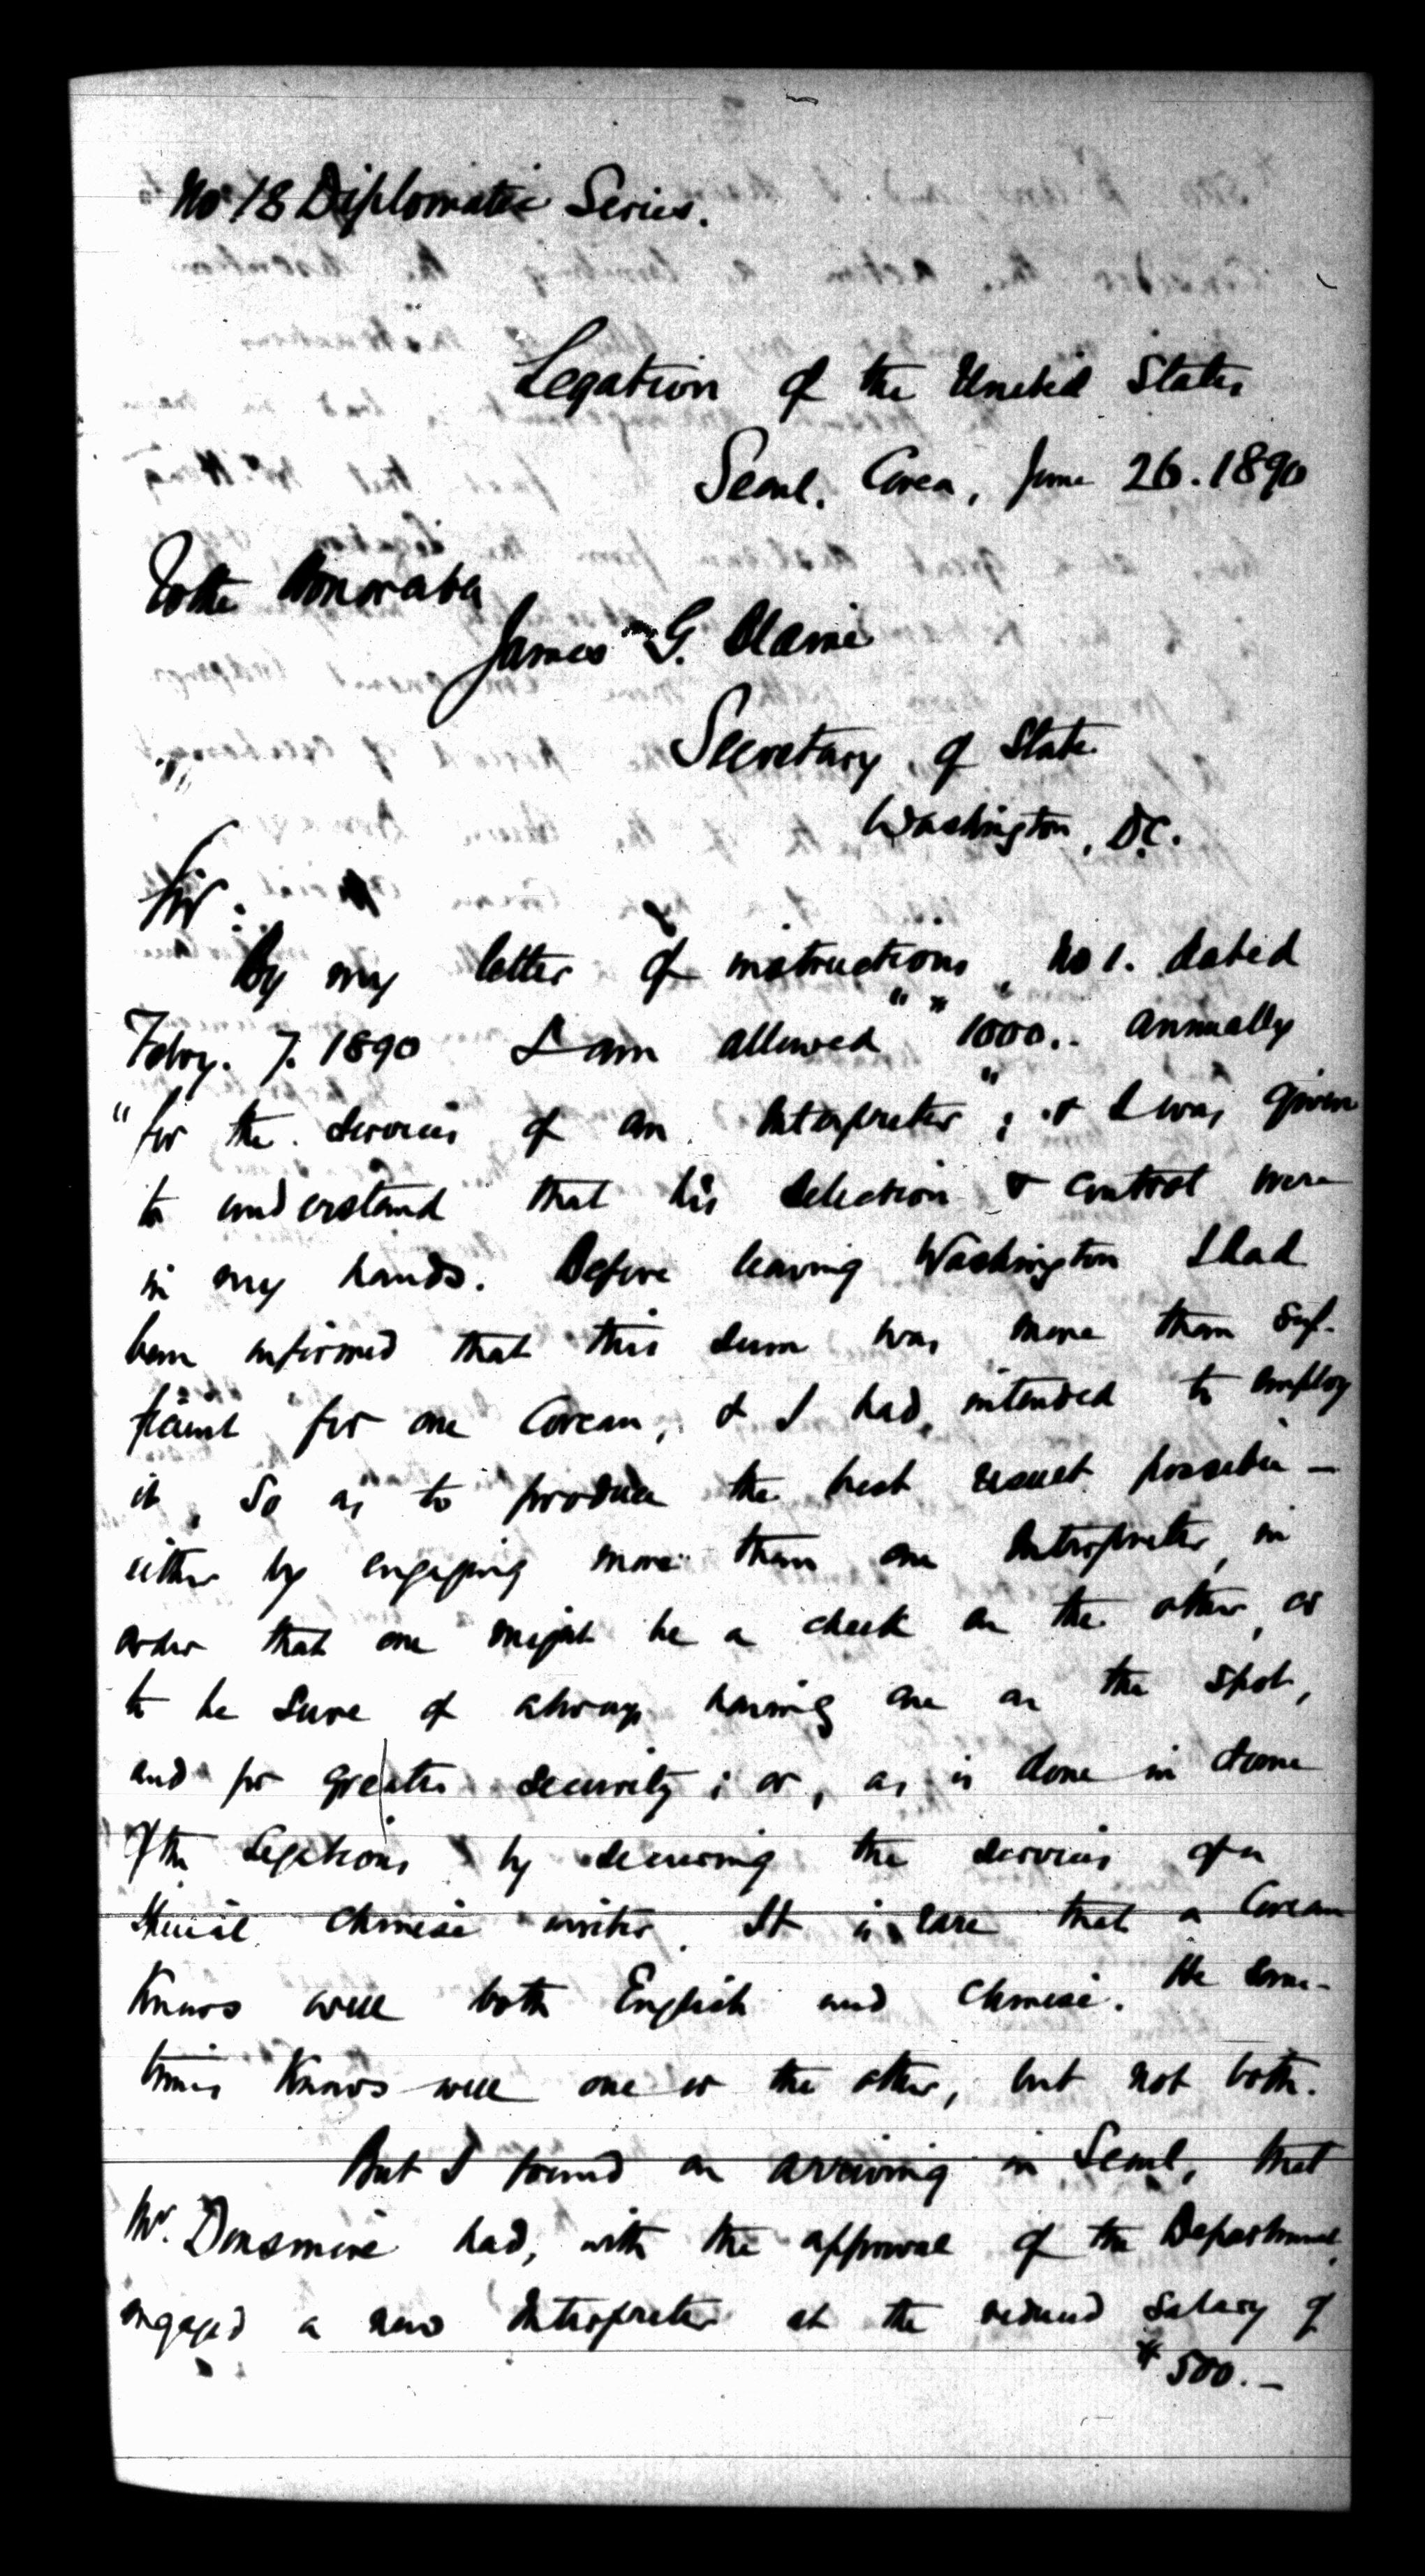 No 18 Diplomatic Series.
Legation of the United States
Seoul. Corea, June 26. 1890
To the Honorable
James G. Blaine
Secretary of State
Washington, D.C.
Sir:
By my letter of instructions, No 1. dated
Febry. 7. 1890 I am allowed "$1000.- annually
"for the services of an Interpreter"; & I was given
to understand that his selection & control were
in my hands. Before leaving Washington I had
been informed that this sum was more than suf-
ficient for one Corean, & I had intended to employ
it, so as to produce the best result possible -
either by engaging more than one Interpreter, in
order that one might be a check on the other, or
to be sure of always having one on the spot,
and for greater security; or, as is done in some
of the Legations by securing the services of a
Chinese writer. It is rare that a Corean
knows well both English and Chinese. He some-
times knows well one or the other, but not both.
But I found on arriving in Seoul, that
Mr. Dinsmore had, with the approval of the Department,
engaged a new Interpreter at the reduced salary of
$500.-